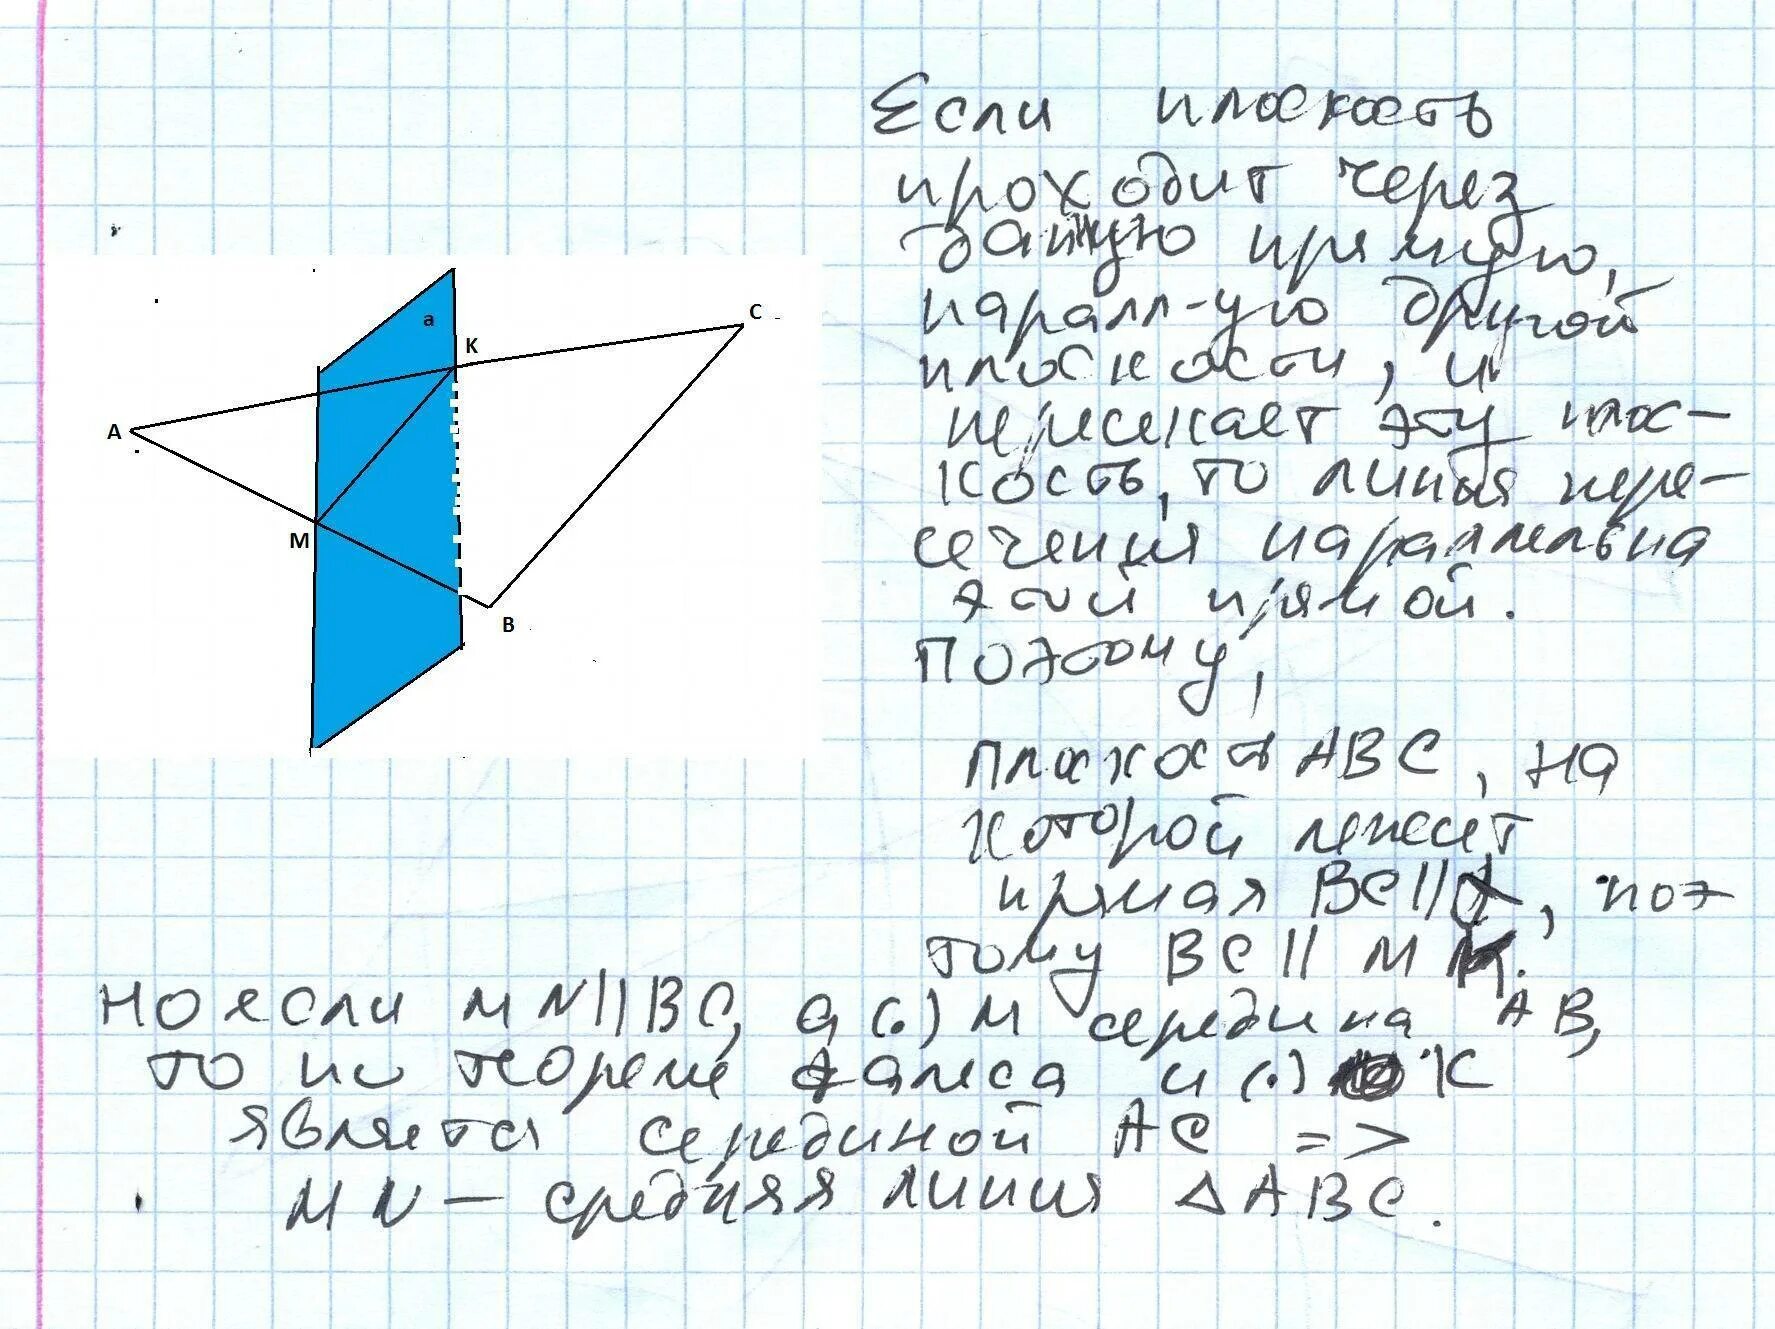 Если плоскость
проходит через
данную прямую,
паралл-ую другой
плоскости, и
пересекает эту плос-
кость, то линия пере-
сечения параллельна
этой прямой.
Поэтому,
плоскость ABC, на
которой лежит
прямая BC || α, поэ
тому BC || MK.
Но если MN || BC, а (.) M середина AB,
то по теореме Фалеса и (.) K
является серединой AC =>
MN – средняя линия ΔABC.
a
K
C
A
M
B